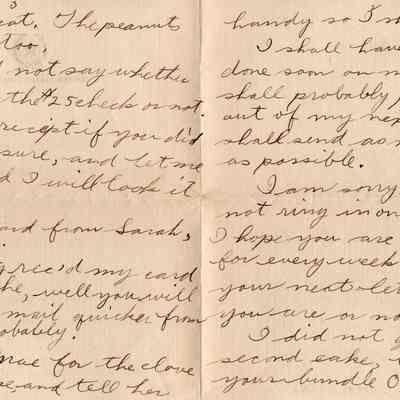 eat. The peanuts
too.
not say whether
the $25 check or not.
receipt if you did
sure, and let me
I will look it
from Sarah,
rec'd my card
he, well you will
mail quicker from
probably.
for the clove
and tell her
handy so I
I shall have
done soon on
shall probably
out of my
shall send as
as possible.
I am sorry
not ring in on
I hope you are
for every week
your next
you are or no
I did not
second cake,
your bundle